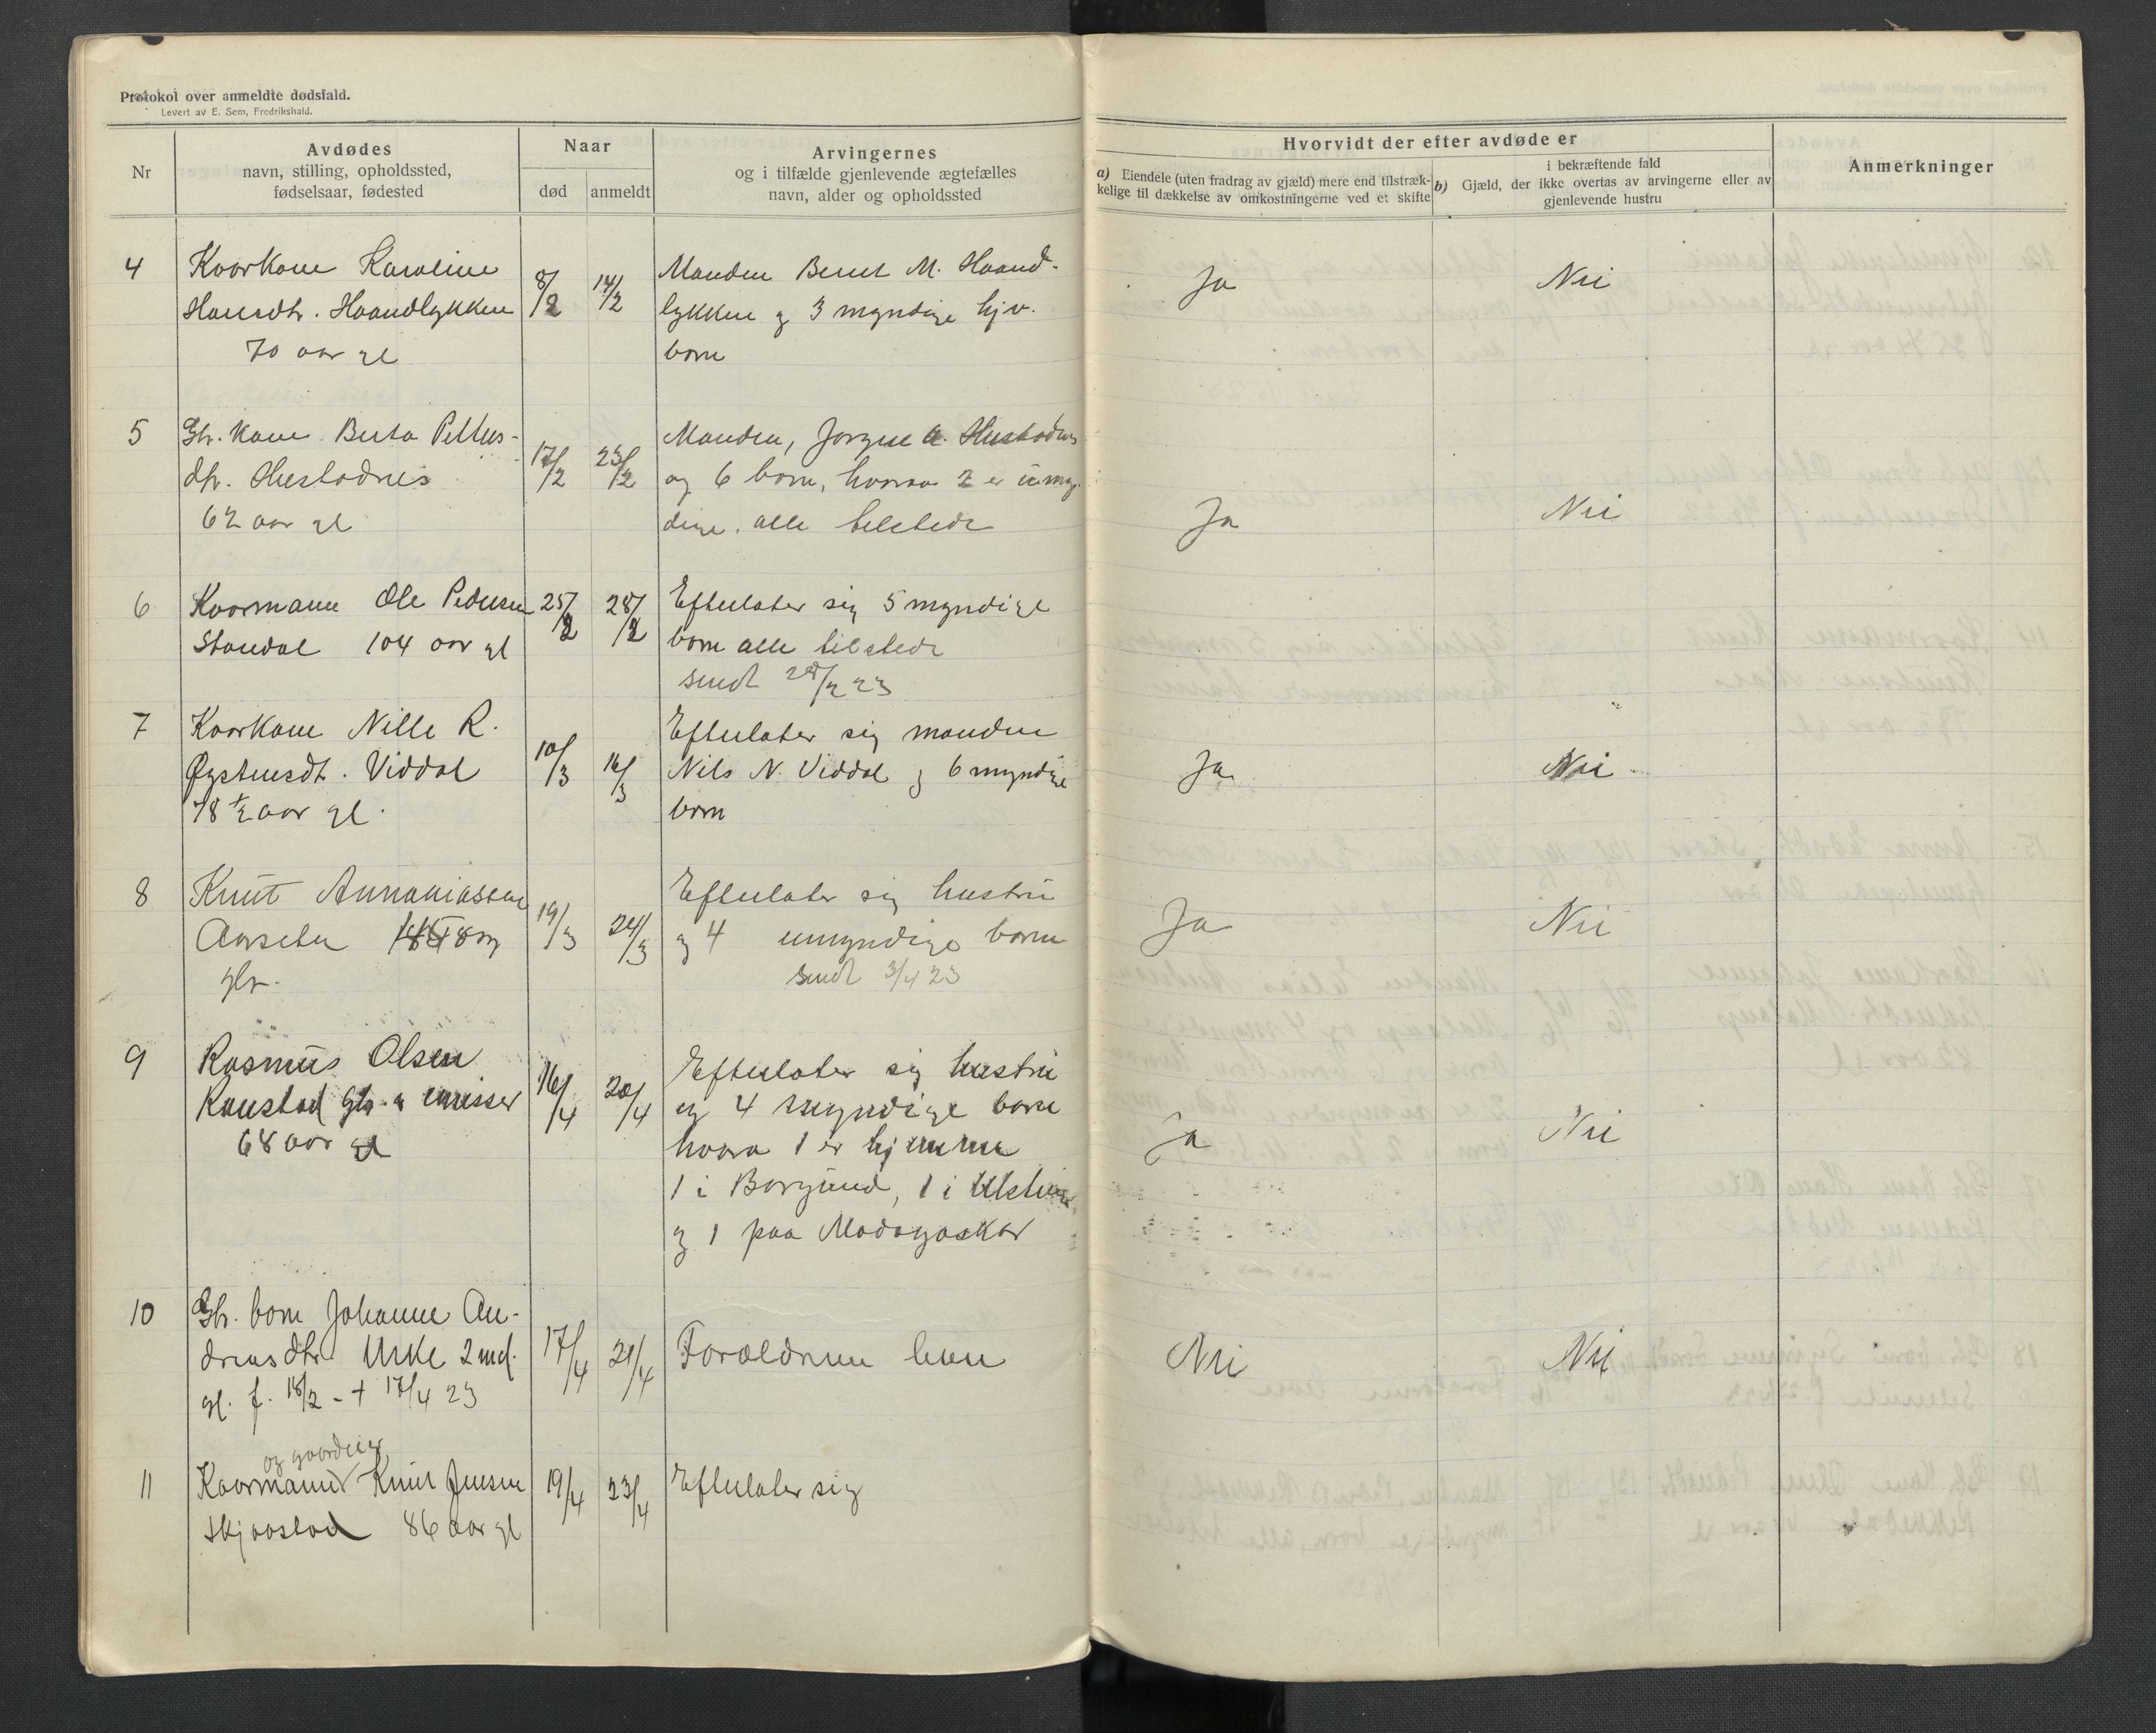 Protokol over anmeldte dødsfald.
Levert av E. Sem, Fredrikshald.
Nr
Avdødes
navn, stilling, opholdssted,
fødselsaar, fødested
Naar
død
anmeldt
Arvingernes
og i tilfælde gjenlevende ægtefælles
navn, alder og opholdssted
Hvorvidt der efter avdøde er
a) Eiendele (uten fradrag av gjæld) mere end tilstræk-
kelige til dækkelse av omkostningerne ved et skifte
i bekræftende fald
b) Gjæld, der ikke overtas av arvingerne eller av
gjenlevende hustru
Anmerkninger
4
Kaarkone Karoline
Hansdtr. Haandlykken
70 aar gl
8/2
14/2
Manden Bernt M. Haand-
lykken og 3 myndige hjv.
born
Ja
Nei
5
Gbr. kone Berta Petters-
dtr. Hustadnes
62 aar gl
17/2
23/2
Manden, Jørgen Hustadnes
og 6 born, hvorav 2 er umyn-
dige. alle tilstede
Ja
Nei
6
Kaarmann Ole Pedersen
Standal 104 aar gl
25/2
28/2
Efterlater sig 5 myndige
born alle tilstede
sendt 28/2 23
7
Kaarkone Nille R.
Øystensdt. Viddal
78 1/2 aar gl.
10/3
16/3
Efterlater sig manden
Nils N. Viddal og 6 myndige
born
Ja
Nei
8
Knut Annaniassen
Aarseter
gbr.
19/3
24/3
Efterlater sig hustru
og 4 umyndige born
sendt 3/4 23
Ja
Nei
9
Rasmus Olsen
Kaustad gbr. e
68 aar gl
16/4
20/4
Efterlater sig hustru
og 4 myndige born
hvorav 1 er hjemme
1 i Borgund, 1 i Ulstein
og 1 paa Madagaskar
Ja
Nei
10
Gbr. born Johanne An-
dreasdtr. Urke 2 md.
gl. f. 18/2 - + 17/4 23
17/4
21/4
Foreldrene lever
Nei
Nei
11
og gaardeier
Kaarmann Knut Jensen
Skjaastad 86 aar gl
19/4
23/4
Efterlater sig